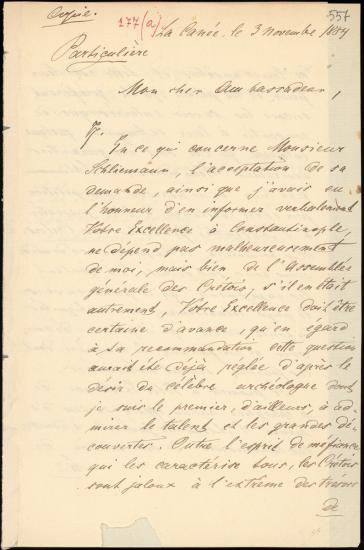 Copie.
177(a)
557
La Canée, le 3 Novembre 1884
Particulière
Mon cher Ambassadeur,
En ce qui concerne Monsieur
Schliemann, l'acceptation de sa
demande, ainsi que j'avais eu
l'honneur d'en informer verbalement
Votre Excellence à Constantinople,
ne dépend pas malheureusement
de moi, mais bien de l'Assemblée
générale des Crétois, s'il en était
autrement, Votre Excellence doit être
certaine d'avance, qu'en égard
à Sa recommandation cette question
aurait été déjà réglée d'après le
désir du célèbre archéologue dont
je suis le premier, d'ailleurs, à ad-
mirer le talent et les grandes dé-
couvertes. Outre l'esprit de méfiance
qui les caractérise tous, les Crétois
sont jaloux à l'extrême des trésors
de